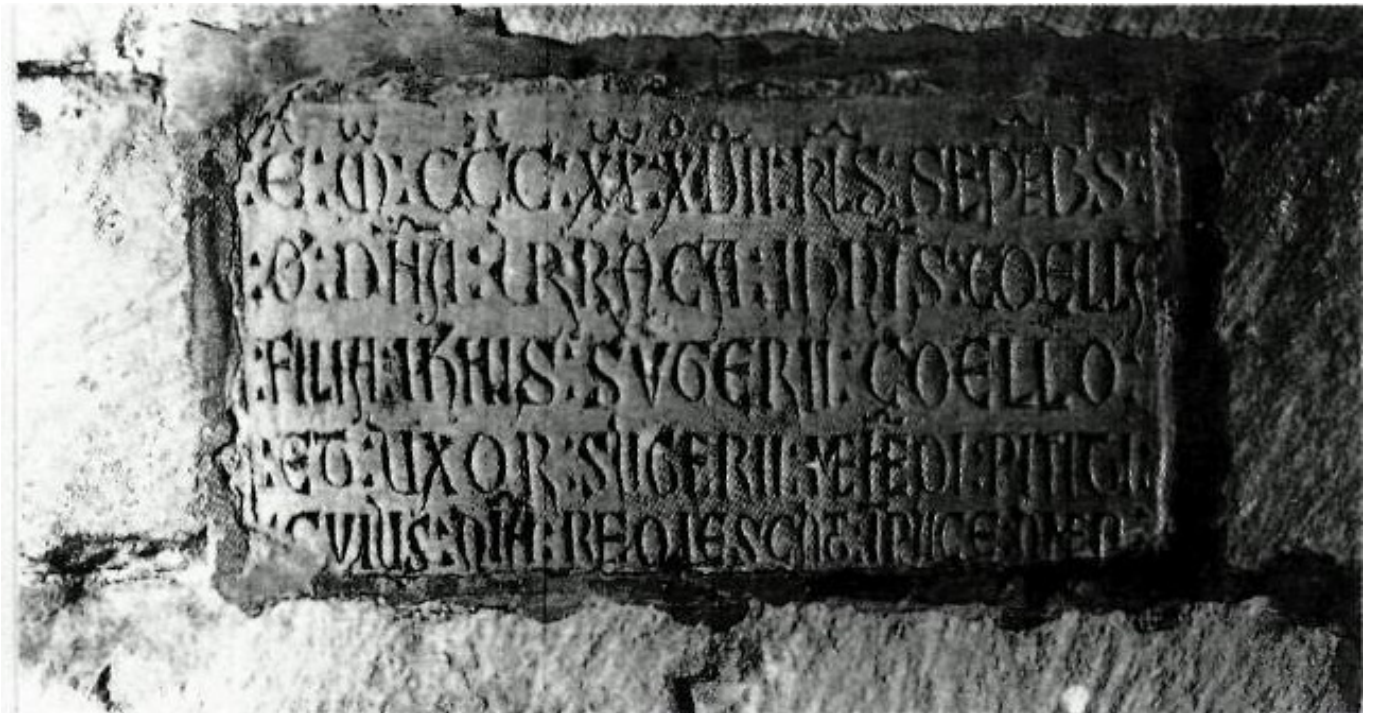 : E : M : CCC : XX : XVII : KLS : SEPTEBS :
: O : DNA : URRACA : IHNIS : COELLA
: FILIA : IHNIS : SVGERII : COELLO
: ET : UXOR : SUGERII : MENEDI : PITITI :
CVIUS : NIA : REQIESCAT : IPACE : AMEN